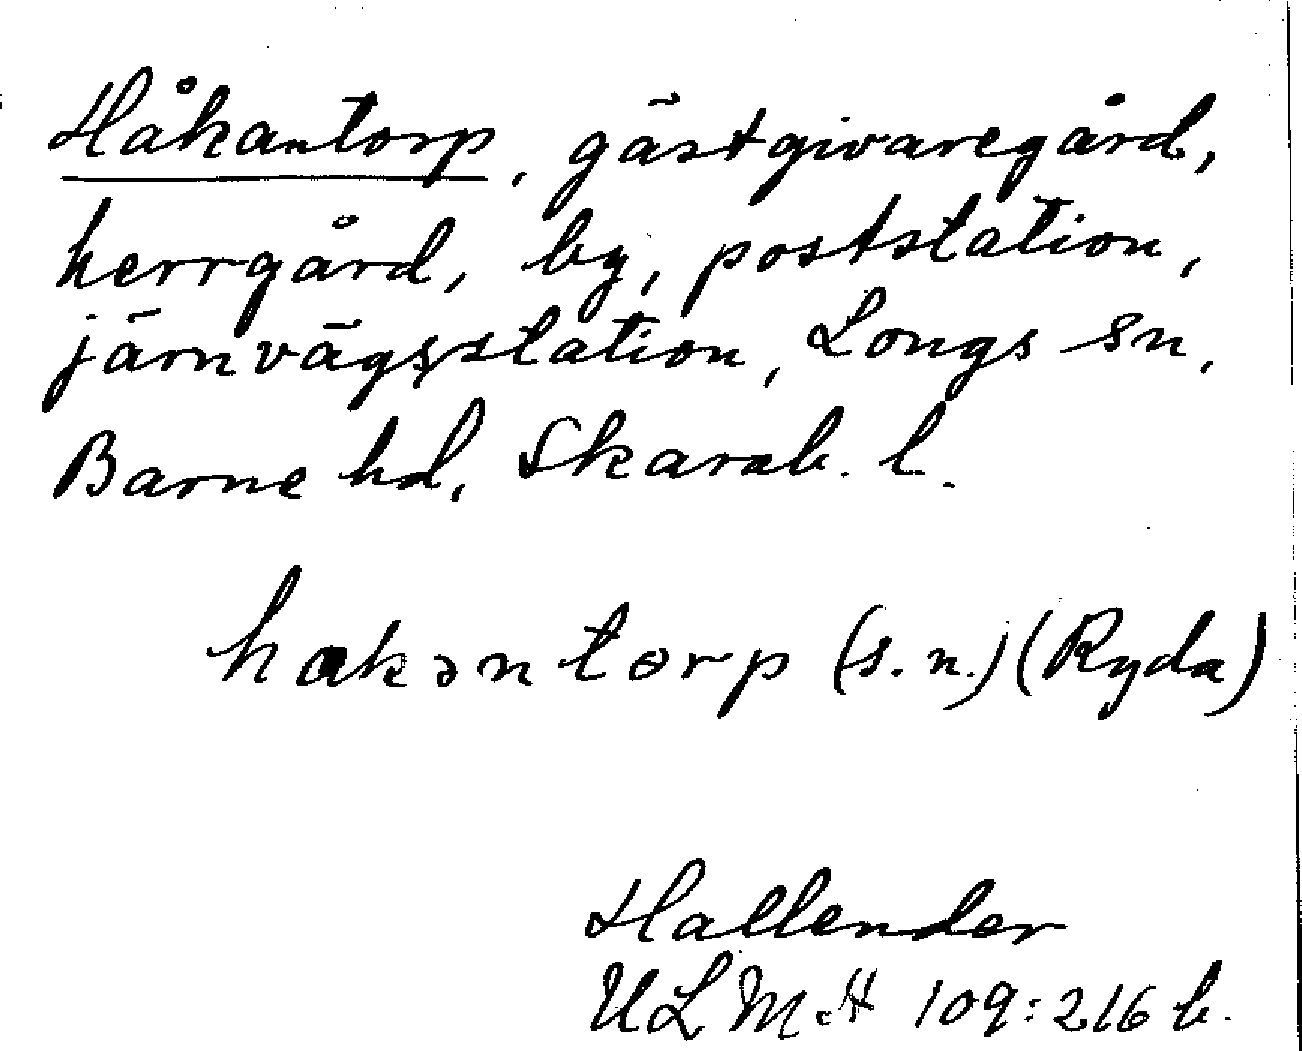 Håkantorp, gästgivaregård,
herrgård, by, poststation,
järnvägsstation, Longs sn,
Barne hd, Skarab. l.
hakəntorp (s. n.) (Ryda)
Hallender
ULMA 109:216 b.